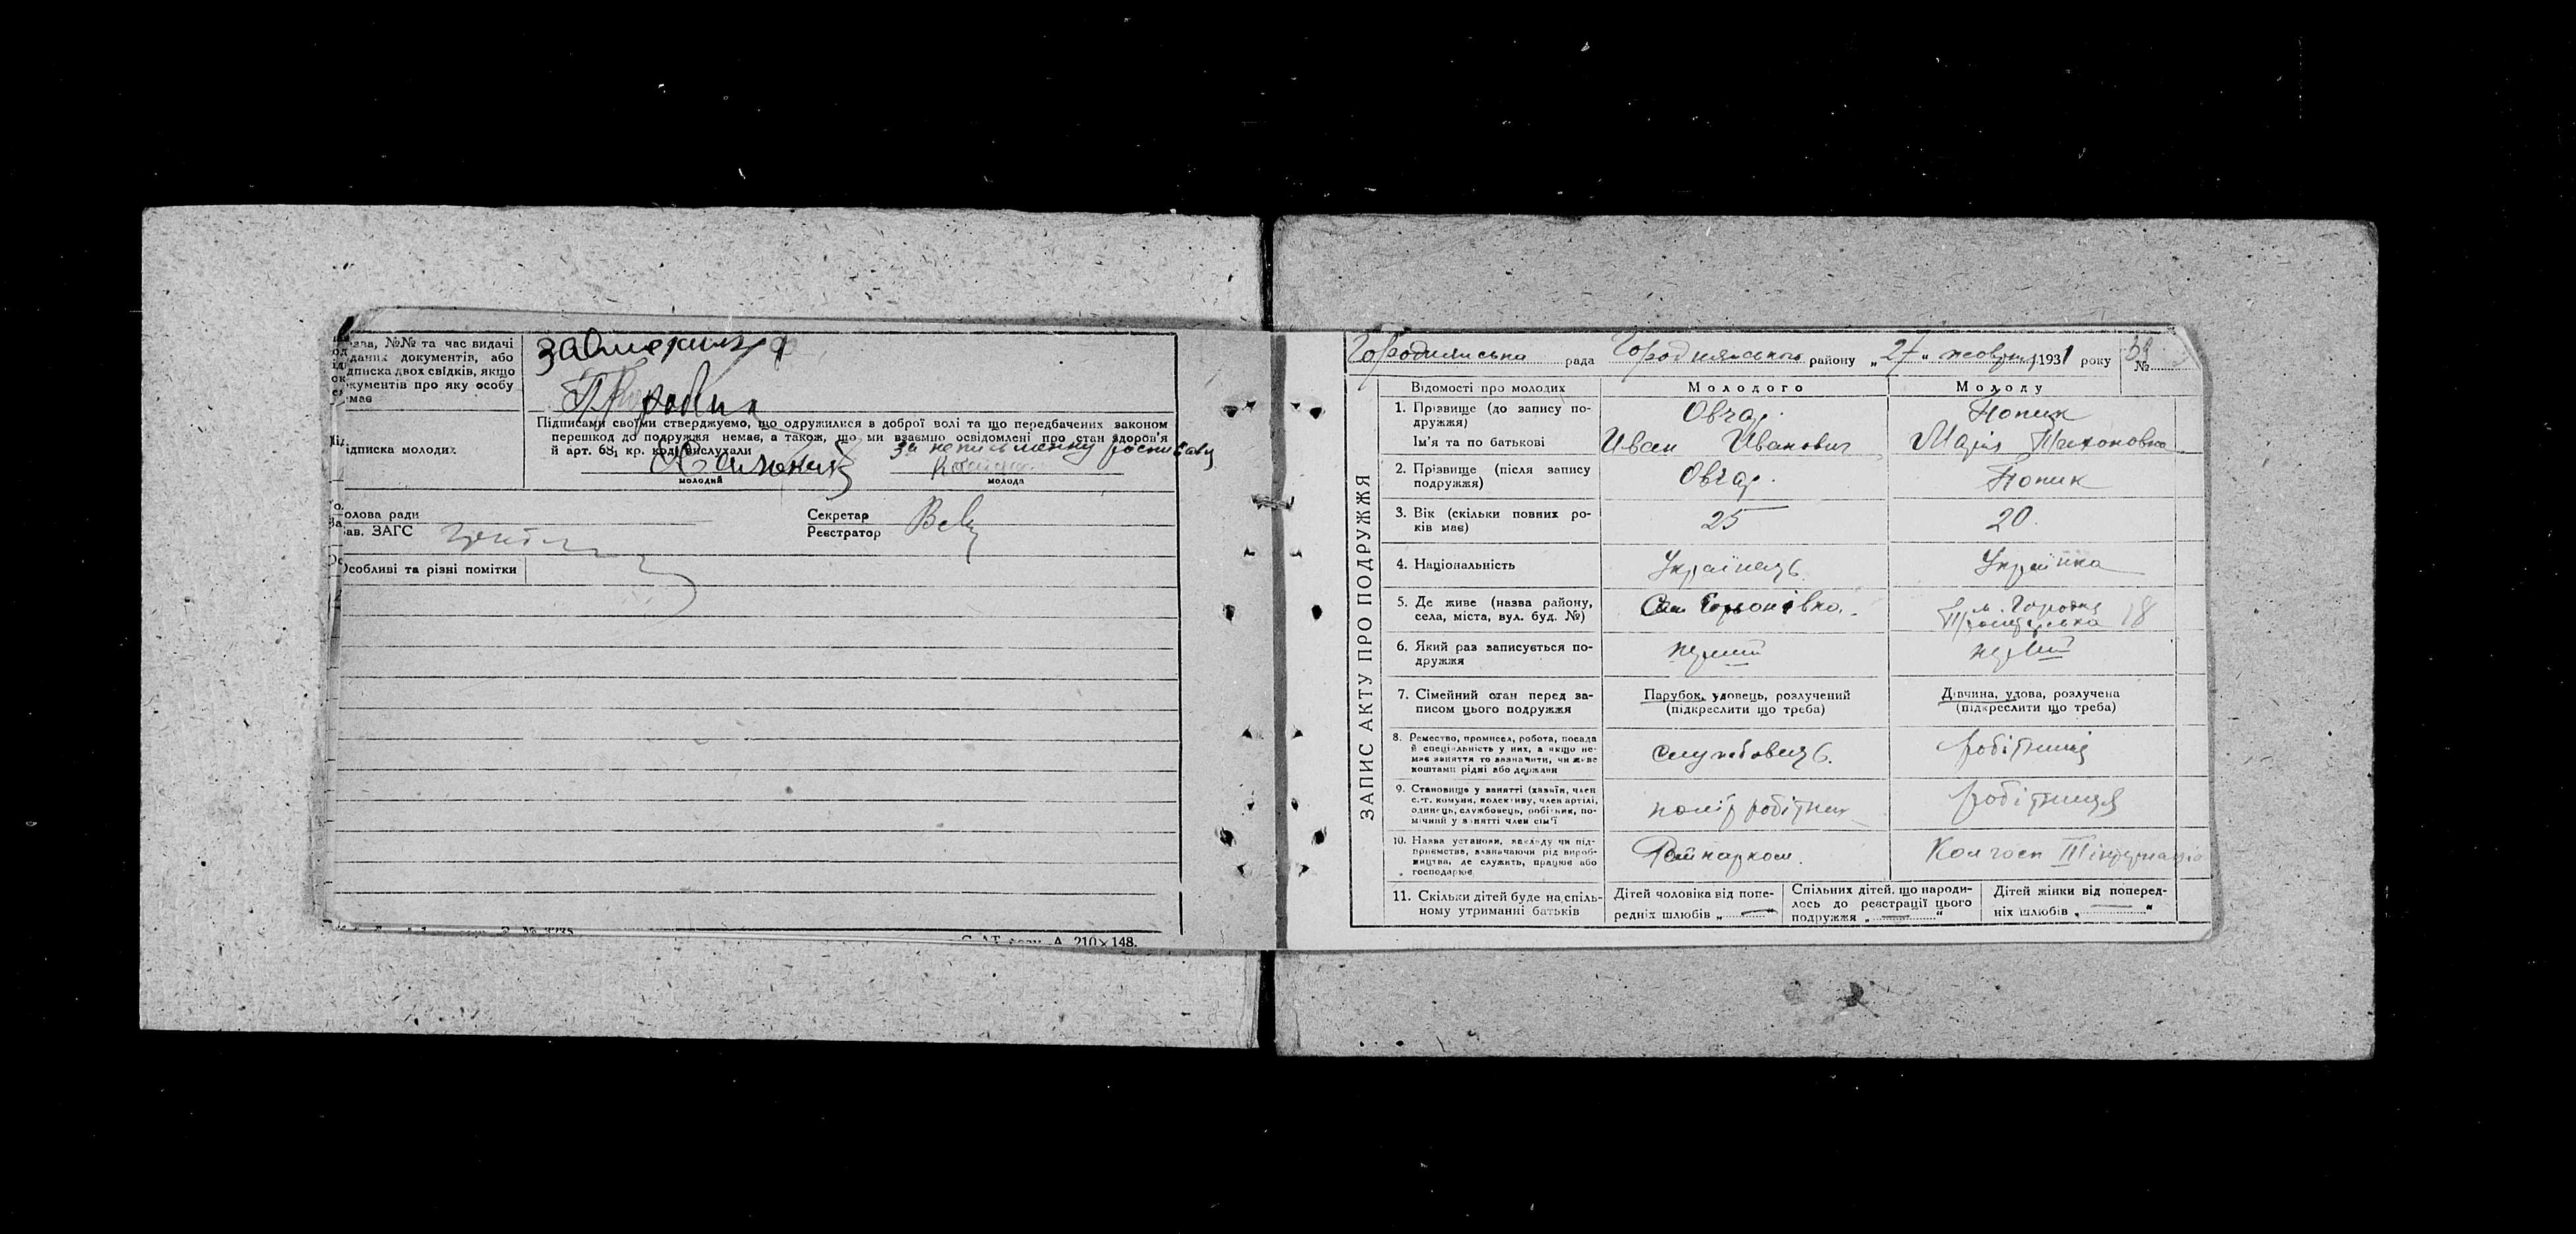 зва, №№ та час видачі
даних документів, або
дписка двох свідків, якщо
кументів про яку особу
має
Підписами своїми стверджуємо, що одружилися в доброї волі та що передбачених законом
перешкод до подружжя немає, а також, що ми взаємно освідомлені про стан здоров'я
й арт. 68₁ кр. код. вислухали
ідписка молодих
за неписьменну росписавсь
молодий
молода
олова ради
Секретар
ав. ЗАГС
Реєстратор
Особливі та різні помітки
А 210×148.
ЗАПИС АКТУ ПРО ПОДРУЖЖЯ
Городнянська рада Городнянського району „27" жовтня 1931 року №
Відомості про молодих Молодого Молоду
1. Прізвище (до запису по-
дружжя) Овчар Попик
Ім'я та по батькові Иван Иванович Марія Тихоновна
2. Прізвище (після запису
подружжя) Овчар Попик
3. Вік (скільки повних ро-
ків має) 25 20
4. Національність Українець Українка
5. Де живе (назва району,
села, міста, вул. буд. №) м. Городня 18
6. Який раз записується по-
дружжя перший перший
7. Сімейний стан перед за-
писом цього подружжя
Парубок, удовець, розлучений
(підкреслити що треба)
Дівчина, удова, розлучена
(підкреслити що треба)
8. Ремество, промисел, робота, посада
й спеціальність у них, а якщо не-
має заняття то зазначити, чи живе
коштами рідні або держави
службовець робітниця
9. Становище у занятті (хазяїн, член
с.-г. комуни, колективу, член артілі,
одинець, службовець, робітник, по-
мічний у занятті член сім'ї
політробітник робітниця
10. Назва установи, закладу чи під-
приємства, зазначаючи рід вироб-
ництва, де служить, працює або
господарює
Колгосп III інтернаціо
11. Скільки дітей буде на спіль-
ному утриманні батьків
Дітей чоловіка від попе-
редніх шлюбів „—"
Спільних дітей, що народи-
лось до реєстрації цього
подружжя „—"
Дітей жінки від поперед-
ніх шлюбів „—"